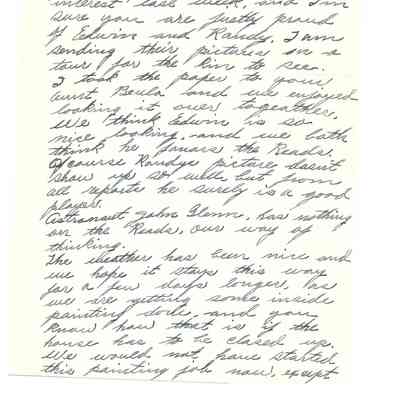 interest last week, and I'm
sure you are justly proud
of Edwin and Randy. I am
sending their pictures on a
tour for the kin to see.
I took the paper to your
Aunt Beula and we enjoyed
looking it over togeather.
We think Edwin is so
nice looking, and we both
think he favors the Reads.
Of course Randys picture dosn't
show up so well, but from
all reports he surely is a good
player.
Astronaut John Glenn, has nothing
on the Reads, our way of
thinking.
The weather has been nice and
we hope it stays this way
for a few days longer, as
we are getting some inside
painting done, and you
know how that is if the
house has to be closed up.
We would not have started
this painting job now, except